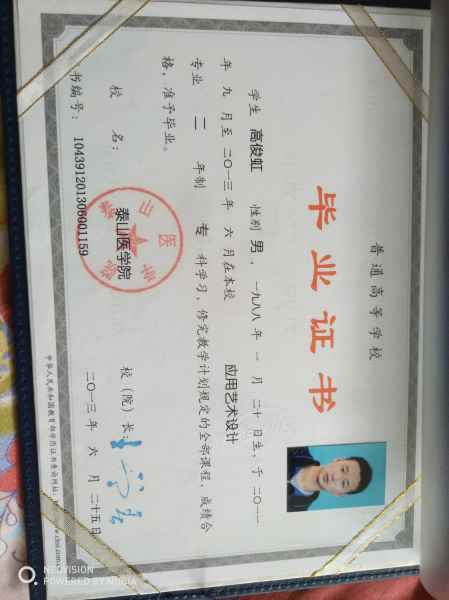 普通高等学校
毕业证书
学生 高俊虹 性别 男，一九八八年 一 月 二十 日生，于 二〇一一
年 九 月至 二〇一三 年 六 月在本校 应用艺术设计
专业 二 年制 专 科学习，修完教学计划规定的全部课程，成绩合
格，准予毕业。
校 名： 泰山医学院 校（院）长：
书编号： 104391201306001159 二〇一三 年 六 月 二十五日
中华人民共和国教育部学历证书查询网址：
NEOVISION
POWERED BY NUBIA